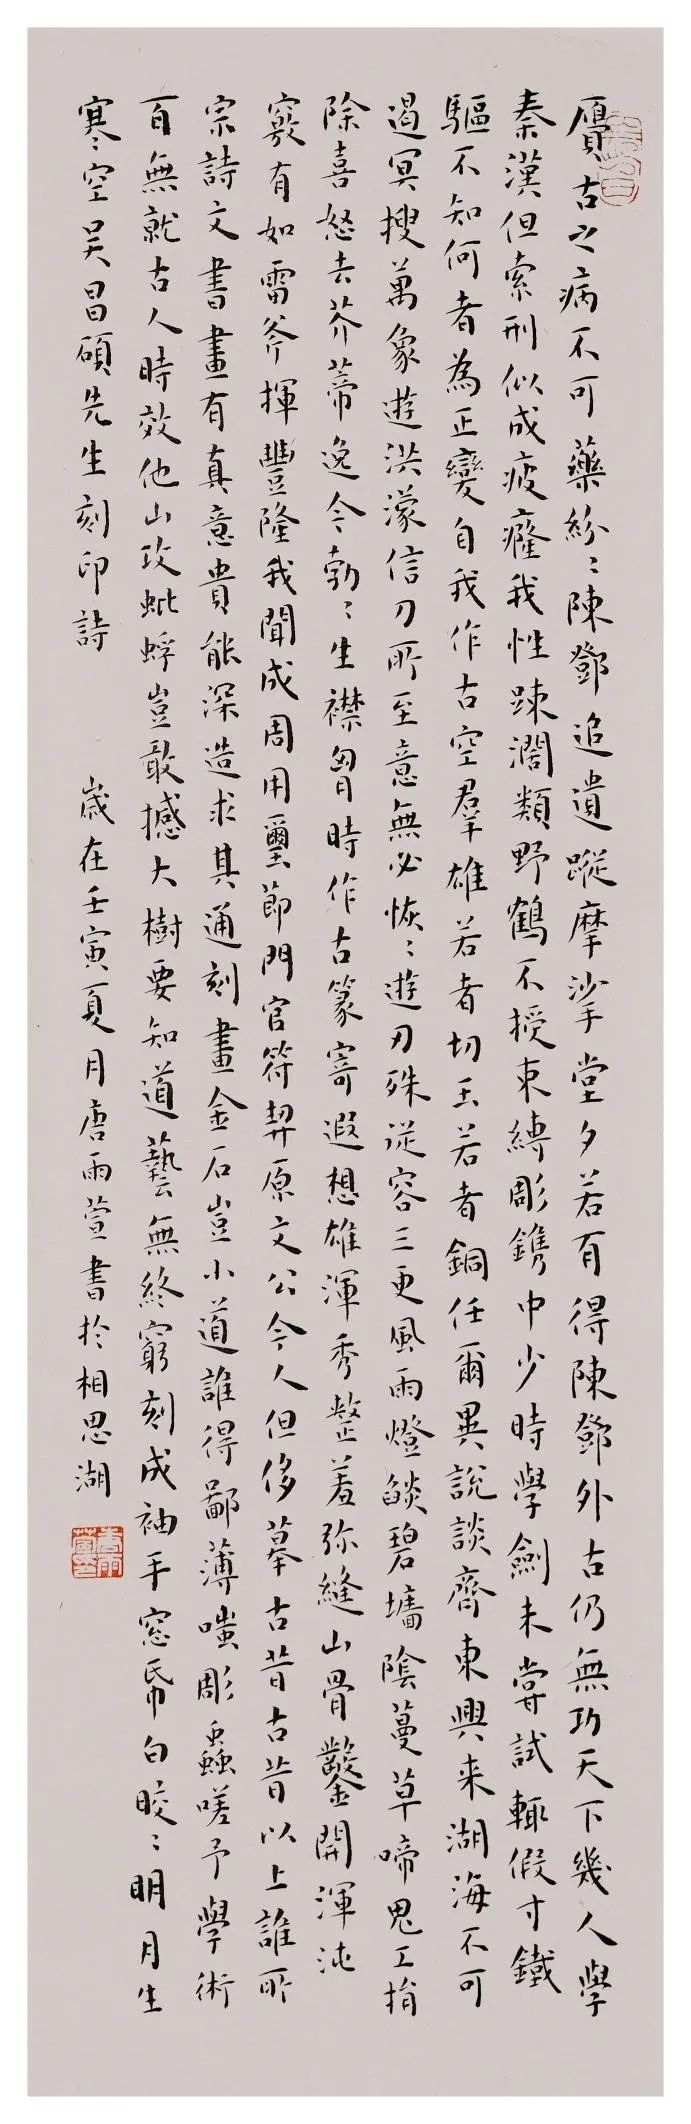 贗古之病不可藥紛紛陳鄧追遺蹤摩挲堂夕若有得陳鄧外古仍無功天下幾人學
秦漢但索刑似成疲癃我性踈濶類野鶴不授束縛彫鐫中少時學劍未嘗試輒假寸鐵
驅不知何者為正變自我作古空羣雄若者切玉若者銅任爾異說談齊東興来湖海不可
遏冥搜萬象遊洪濛信刀所至意無必恢恢遊刃殊從容三更風雨燈燄碧墻陰蔓草啼鬼工捐
除喜怒去芥蒂逸令勃勃生襟胷時作古篆寄遐想雄渾秀整羞弥縫山骨鑿開渾沌
竅有如雷斧揮豐隆我聞成周用璽節門官符契原文公今人但侈摹古昔古昔以上誰所
宗詩文書畫有真意貴能深造求其通刻畫金石豈小道誰得鄙薄嗤彫蟲嗟予學術
百無就古人時效他山攻蚍蜉豈敢撼大樹要知道藝無終窮刻成袖手窓帋白晈晈明月生
寒空吴昌碩先生刻印詩 歲在壬寅夏月唐雨萱書於相思湖